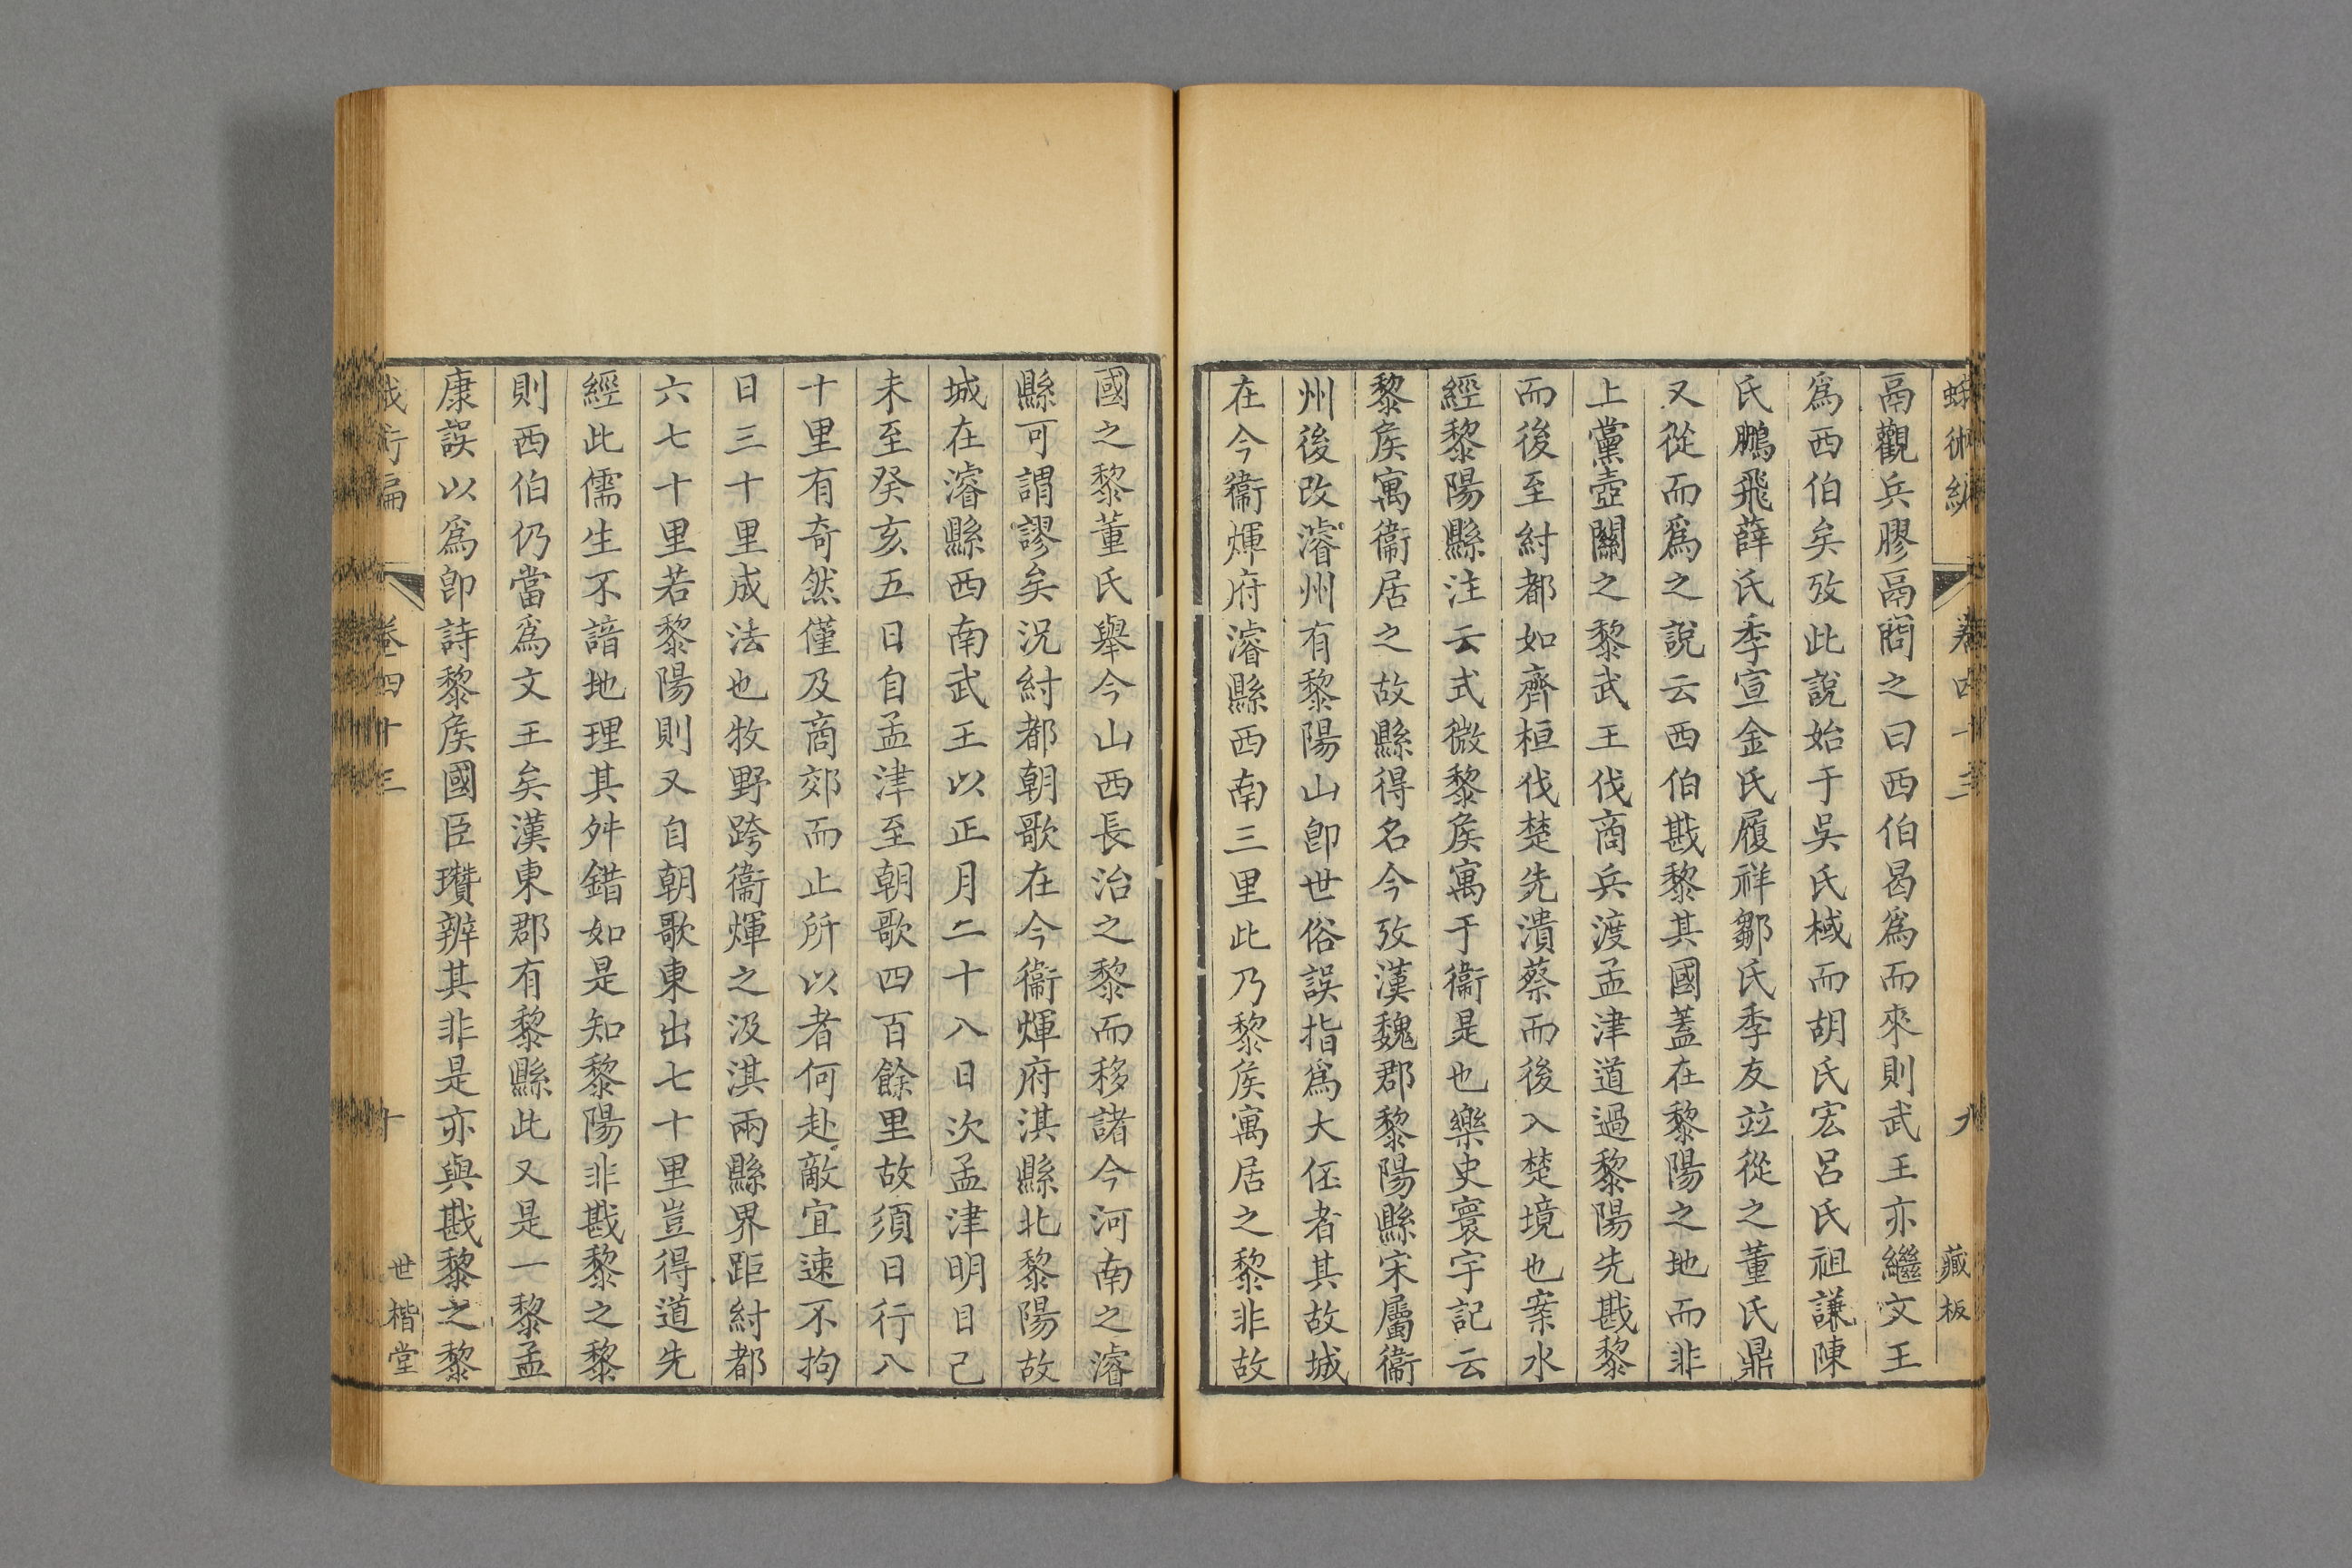 蛾術編 卷四十三 九 藏板
鬲觀兵膠鬲問之曰西伯曷爲而來則武王亦繼文王
爲西伯矣攷此說始于吳氏棫而胡氏宏呂氏祖謙陳
氏鵬飛薛氏季宣金氏履祥鄒氏季友竝從之董氏鼎
又從而爲之說云西伯戡黎其國蓋在黎陽之地而非
上黨壺關之黎武王伐商兵渡孟津道過黎陽先戡黎
而後至紂都如齊桓伐楚先潰蔡而後入楚境也案水
經黎陽縣注云式微黎矦寓于衞是也樂史寰宇記云
黎矦寓衞居之故縣得名今攷漢魏郡黎陽縣宋屬衞
州後改濬州有黎陽山卽世俗誤指爲大伾者其故城
在今衞煇府濬縣西南三里此乃黎矦寓居之黎非故
國之黎董氏舉今山西長治之黎而移諸今河南之濬
縣可謂謬矣況紂都朝歌在今衞煇府淇縣北黎陽故
城在濬縣西南武王以正月二十八日次孟津明日己
未至癸亥五日自孟津至朝歌四百餘里故須日行八
十里有奇然僅及商郊而止所以者何赴敵宜速不拘
日三十里成法也牧野跨衞煇之汲淇兩縣界距紂都
六七十里若黎陽則又自朝歌東出七十里豈得道先
經此儒生不諳地理其舛錯如是知黎陽非戡黎之黎
則西伯仍當爲文王矣漢東郡有黎縣此又是一黎孟
康誤以爲卽詩黎矦國臣瓚辨其非是亦與戡黎之黎
蛾術編 卷四十三 十 世楷堂